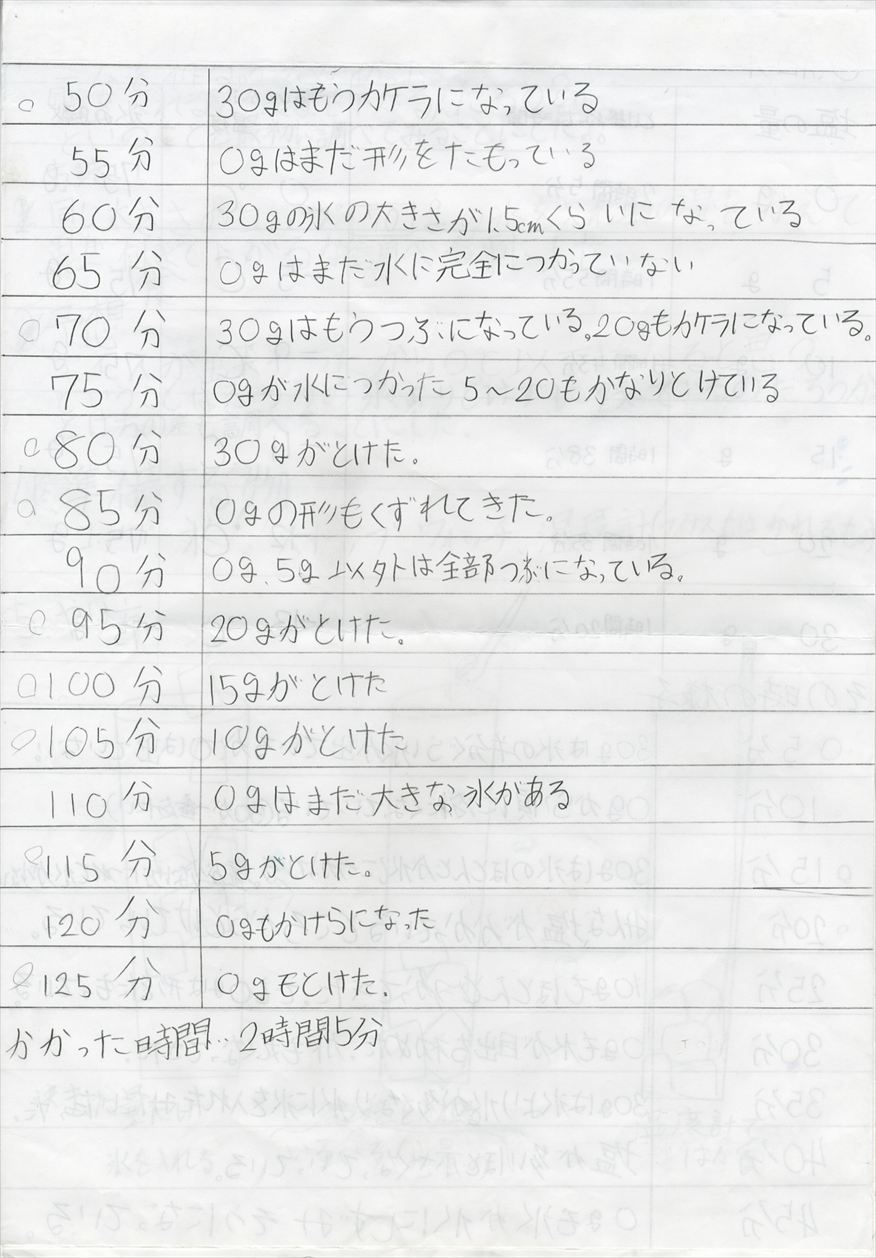 50分 30gはもうカケラになっている
55分 0gはまだ形をたもっている
60分 30gの氷の大きさが1.5cmくらいになっている
65分 0gはまだ水に完全につかっていない
70分 30gはもうつぶになっている。20gもカケラになっている。
75分 0gが水につかった 5～20もかなりとけている
80分 30gがとけた。
85分 0gの形もくずれてきた。
90分 0g、5g以外は全部つぶになっている。
95分 20gがとけた。
100分 15gがとけた
105分 10gがとけた
110分 0gはまだ大きな氷がある
115分 5gがとけた。
120分 0gもかけらになった
125分 0gもとけた.
かかった時間…2時間5分